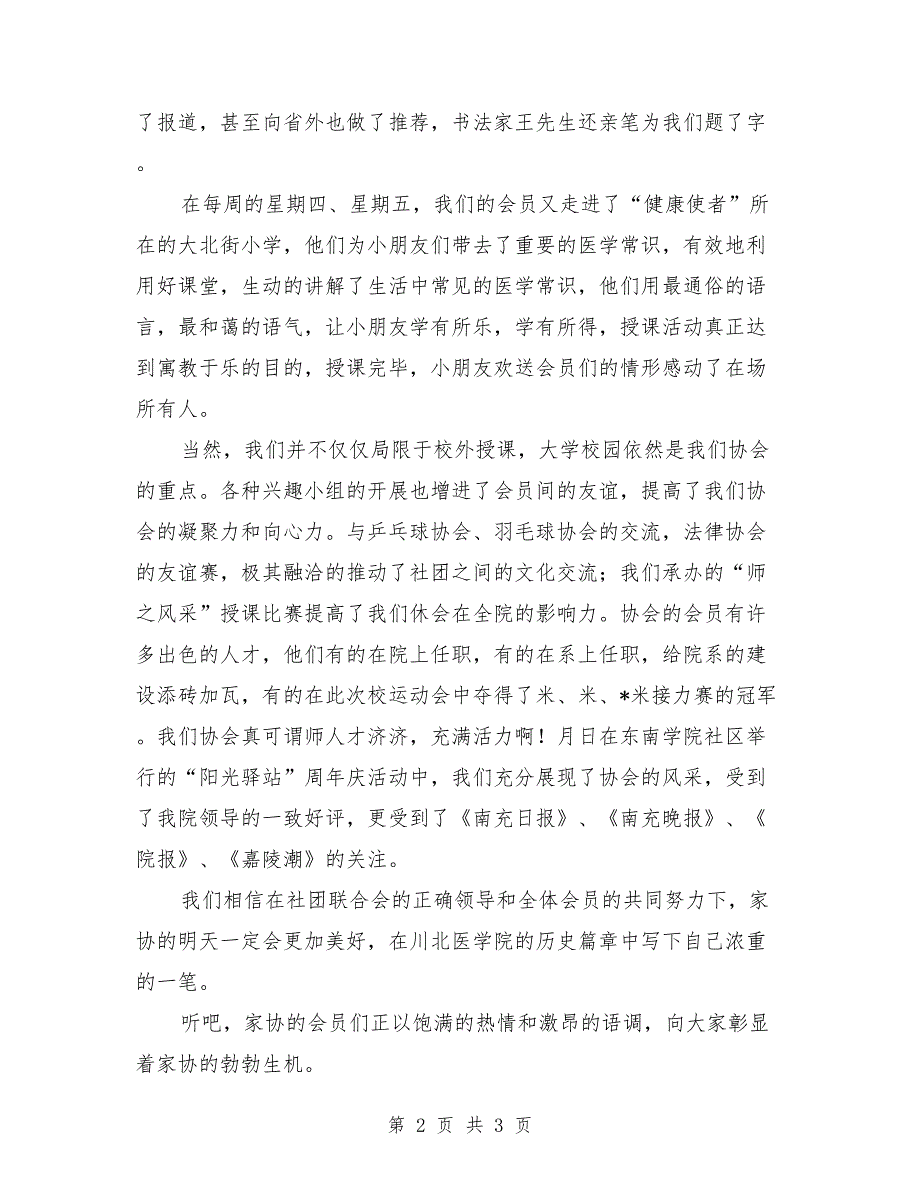 了报道，甚至向省外也做了推荐，书法家王先生还亲笔为我们题了字
。
在每周的星期四、星期五，我们的会员又走进了“健康使者”所
在的大北街小学，他们为小朋友们带去了重要的医学常识，有效地利
用好课堂，生动的讲解了生活中常见的医学常识，他们用最通俗的语
言，最和蔼的语气，让小朋友学有所乐，学有所得，授课活动真正达
到寓教于乐的目的，授课完毕，小朋友欢送会员们的情形感动了在场
所有人。
当然，我们并不仅仅局限于校外授课，大学校园依然是我们协会
的重点。各种兴趣小组的开展也增进了会员间的友谊，提高了我们协
会的凝聚力和向心力。与乒乓球协会、羽毛球协会的交流，法律协会
的友谊赛，极其融洽的推动了社团之间的文化交流；我们承办的“师
之风采”授课比赛提高了我们休会在全院的影响力。协会的会员有许
多出色的人才，他们有的在院上任职，有的在系上任职，给院系的建
设添砖加瓦，有的在此次校运动会中夺得了米、米、*米接力赛的冠军
。我们协会真可谓师人才济济，充满活力啊！月日在东南学院社区举
行的“阳光驿站”周年庆活动中，我们充分展现了协会的风采，受到
了我院领导的一致好评，更受到了《南充日报》、《南充晚报》、《
院报》、《嘉陵潮》的关注。
我们相信在社团联合会的正确领导和全体会员的共同努力下，家
协的明天一定会更加美好，在川北医学院的历史篇章中写下自己浓重
的一笔。
听吧，家协的会员们正以饱满的热情和激昂的语调，向大家彰显
着家协的勃勃生机。
第 2 页 共 3 页